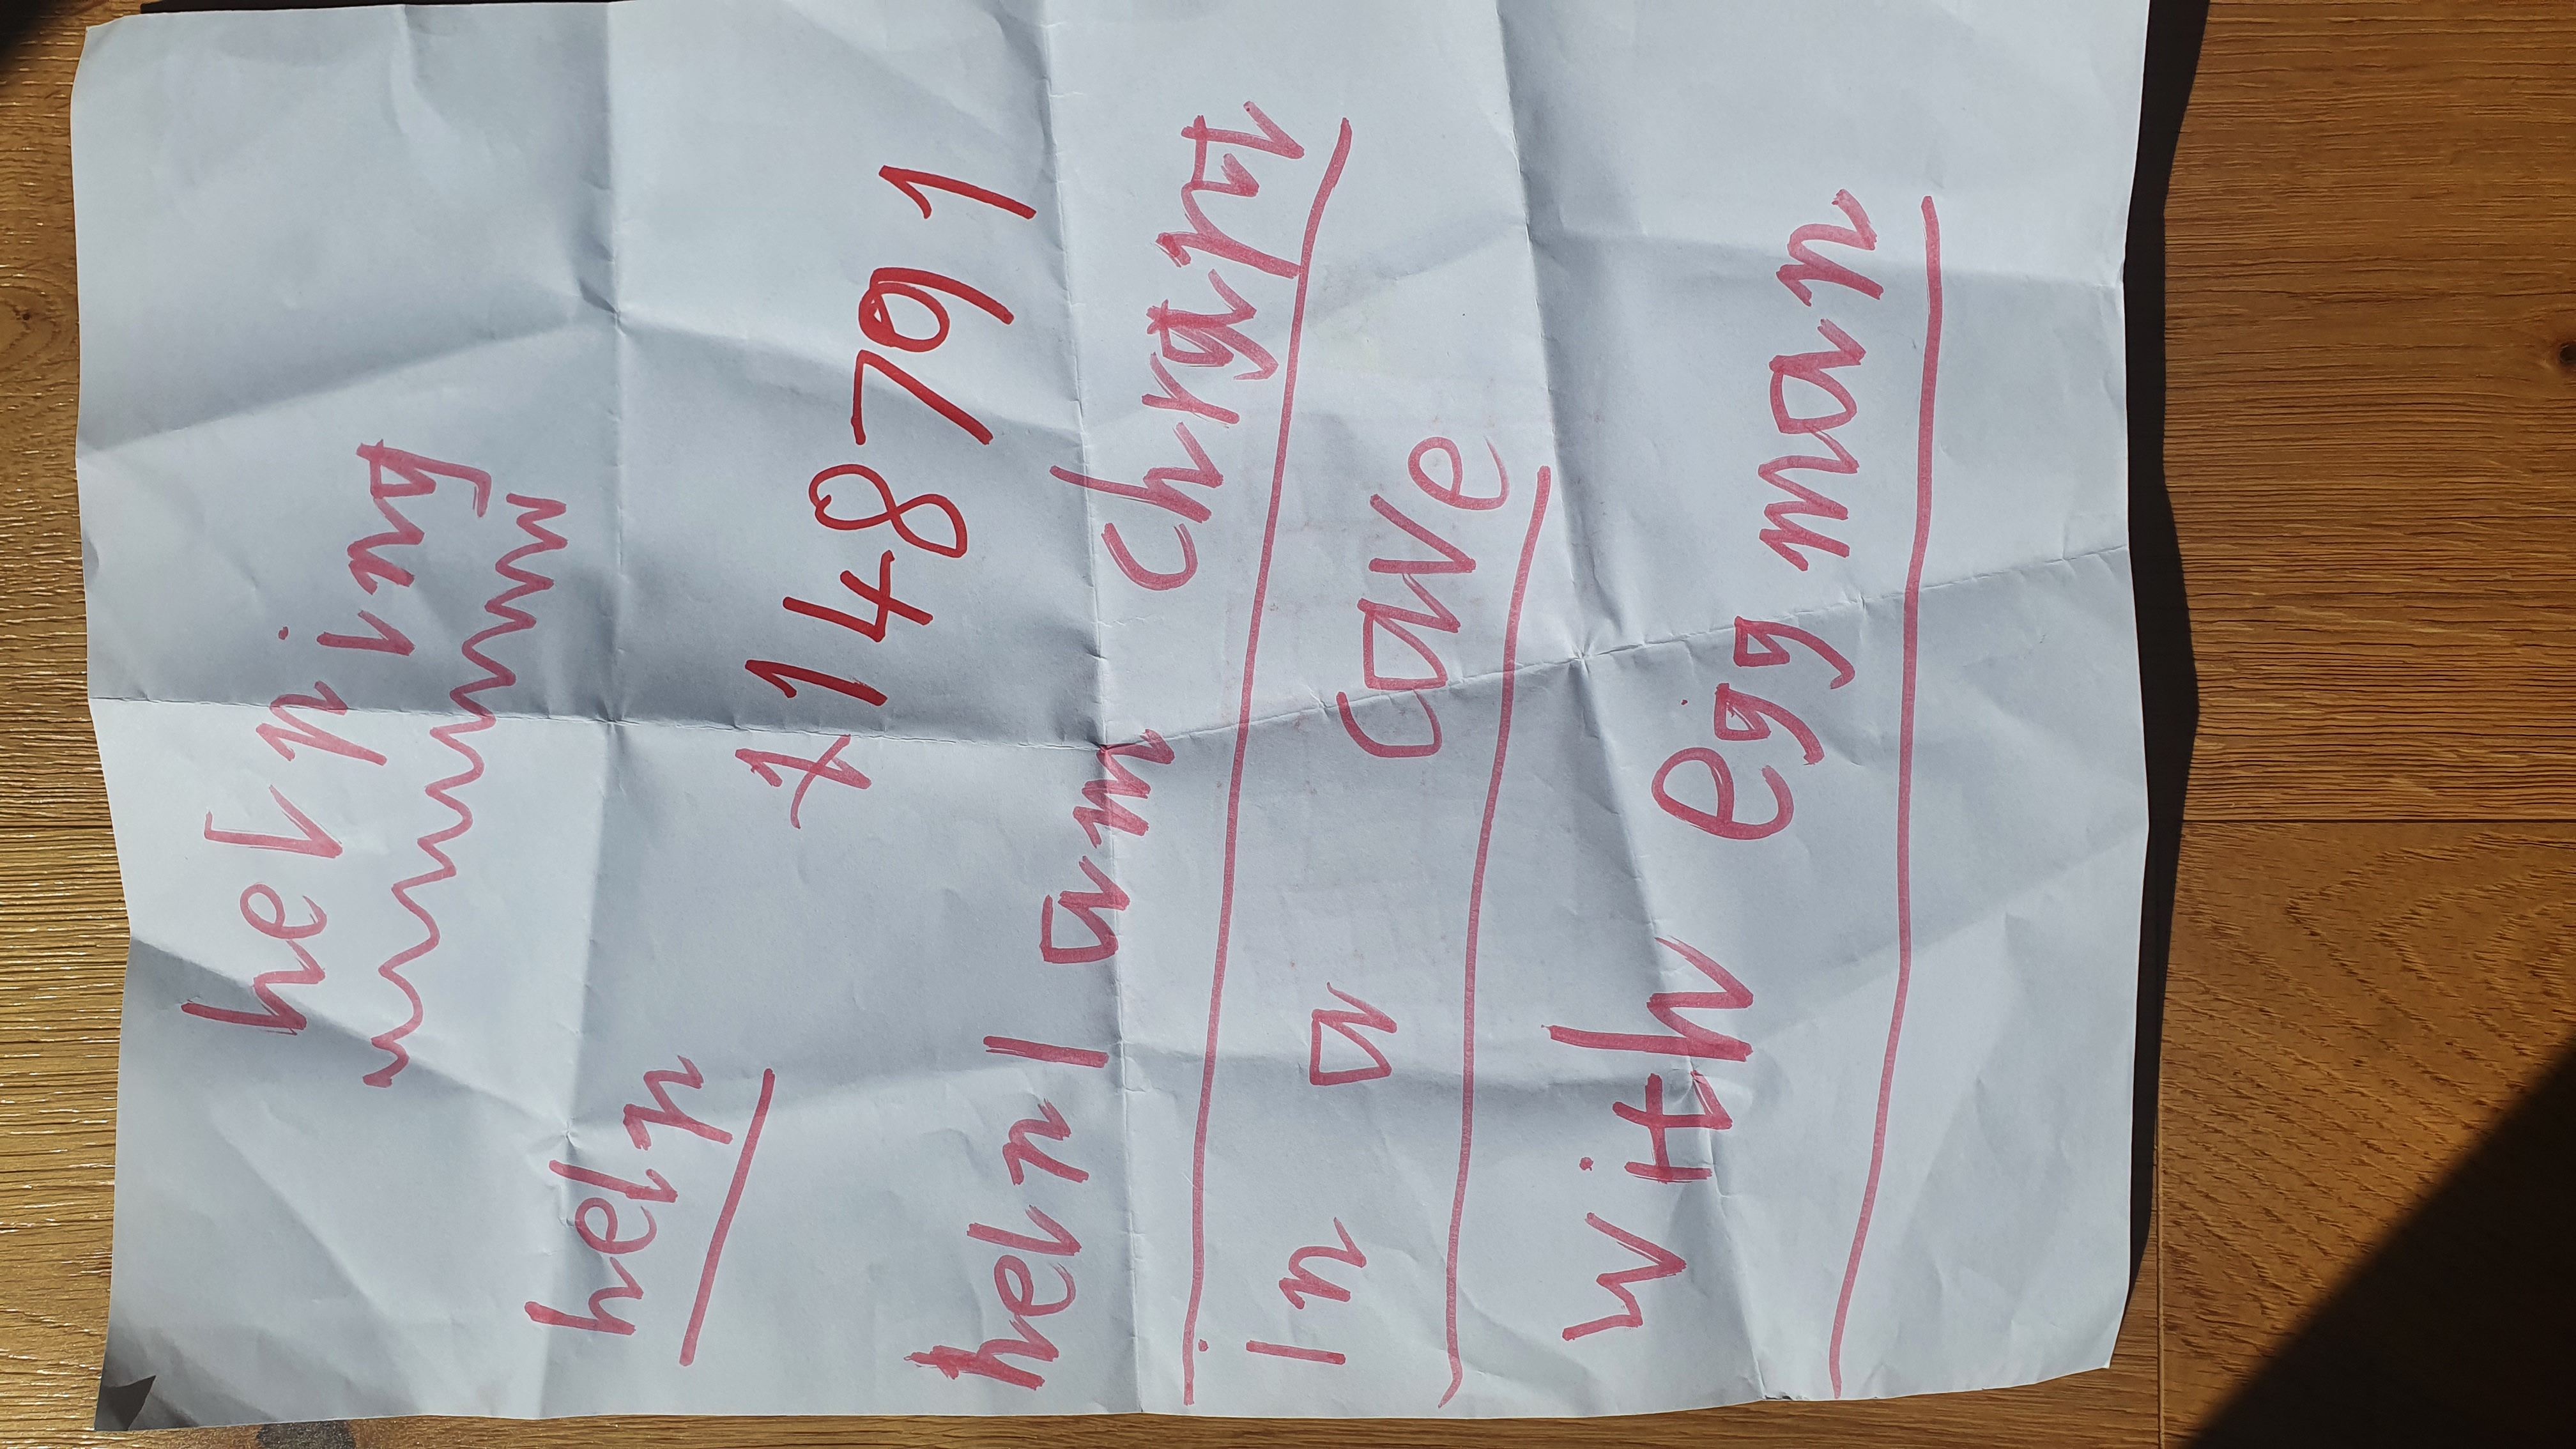 helping
help
1148791
help I am chrapt
in a cave
with eggman